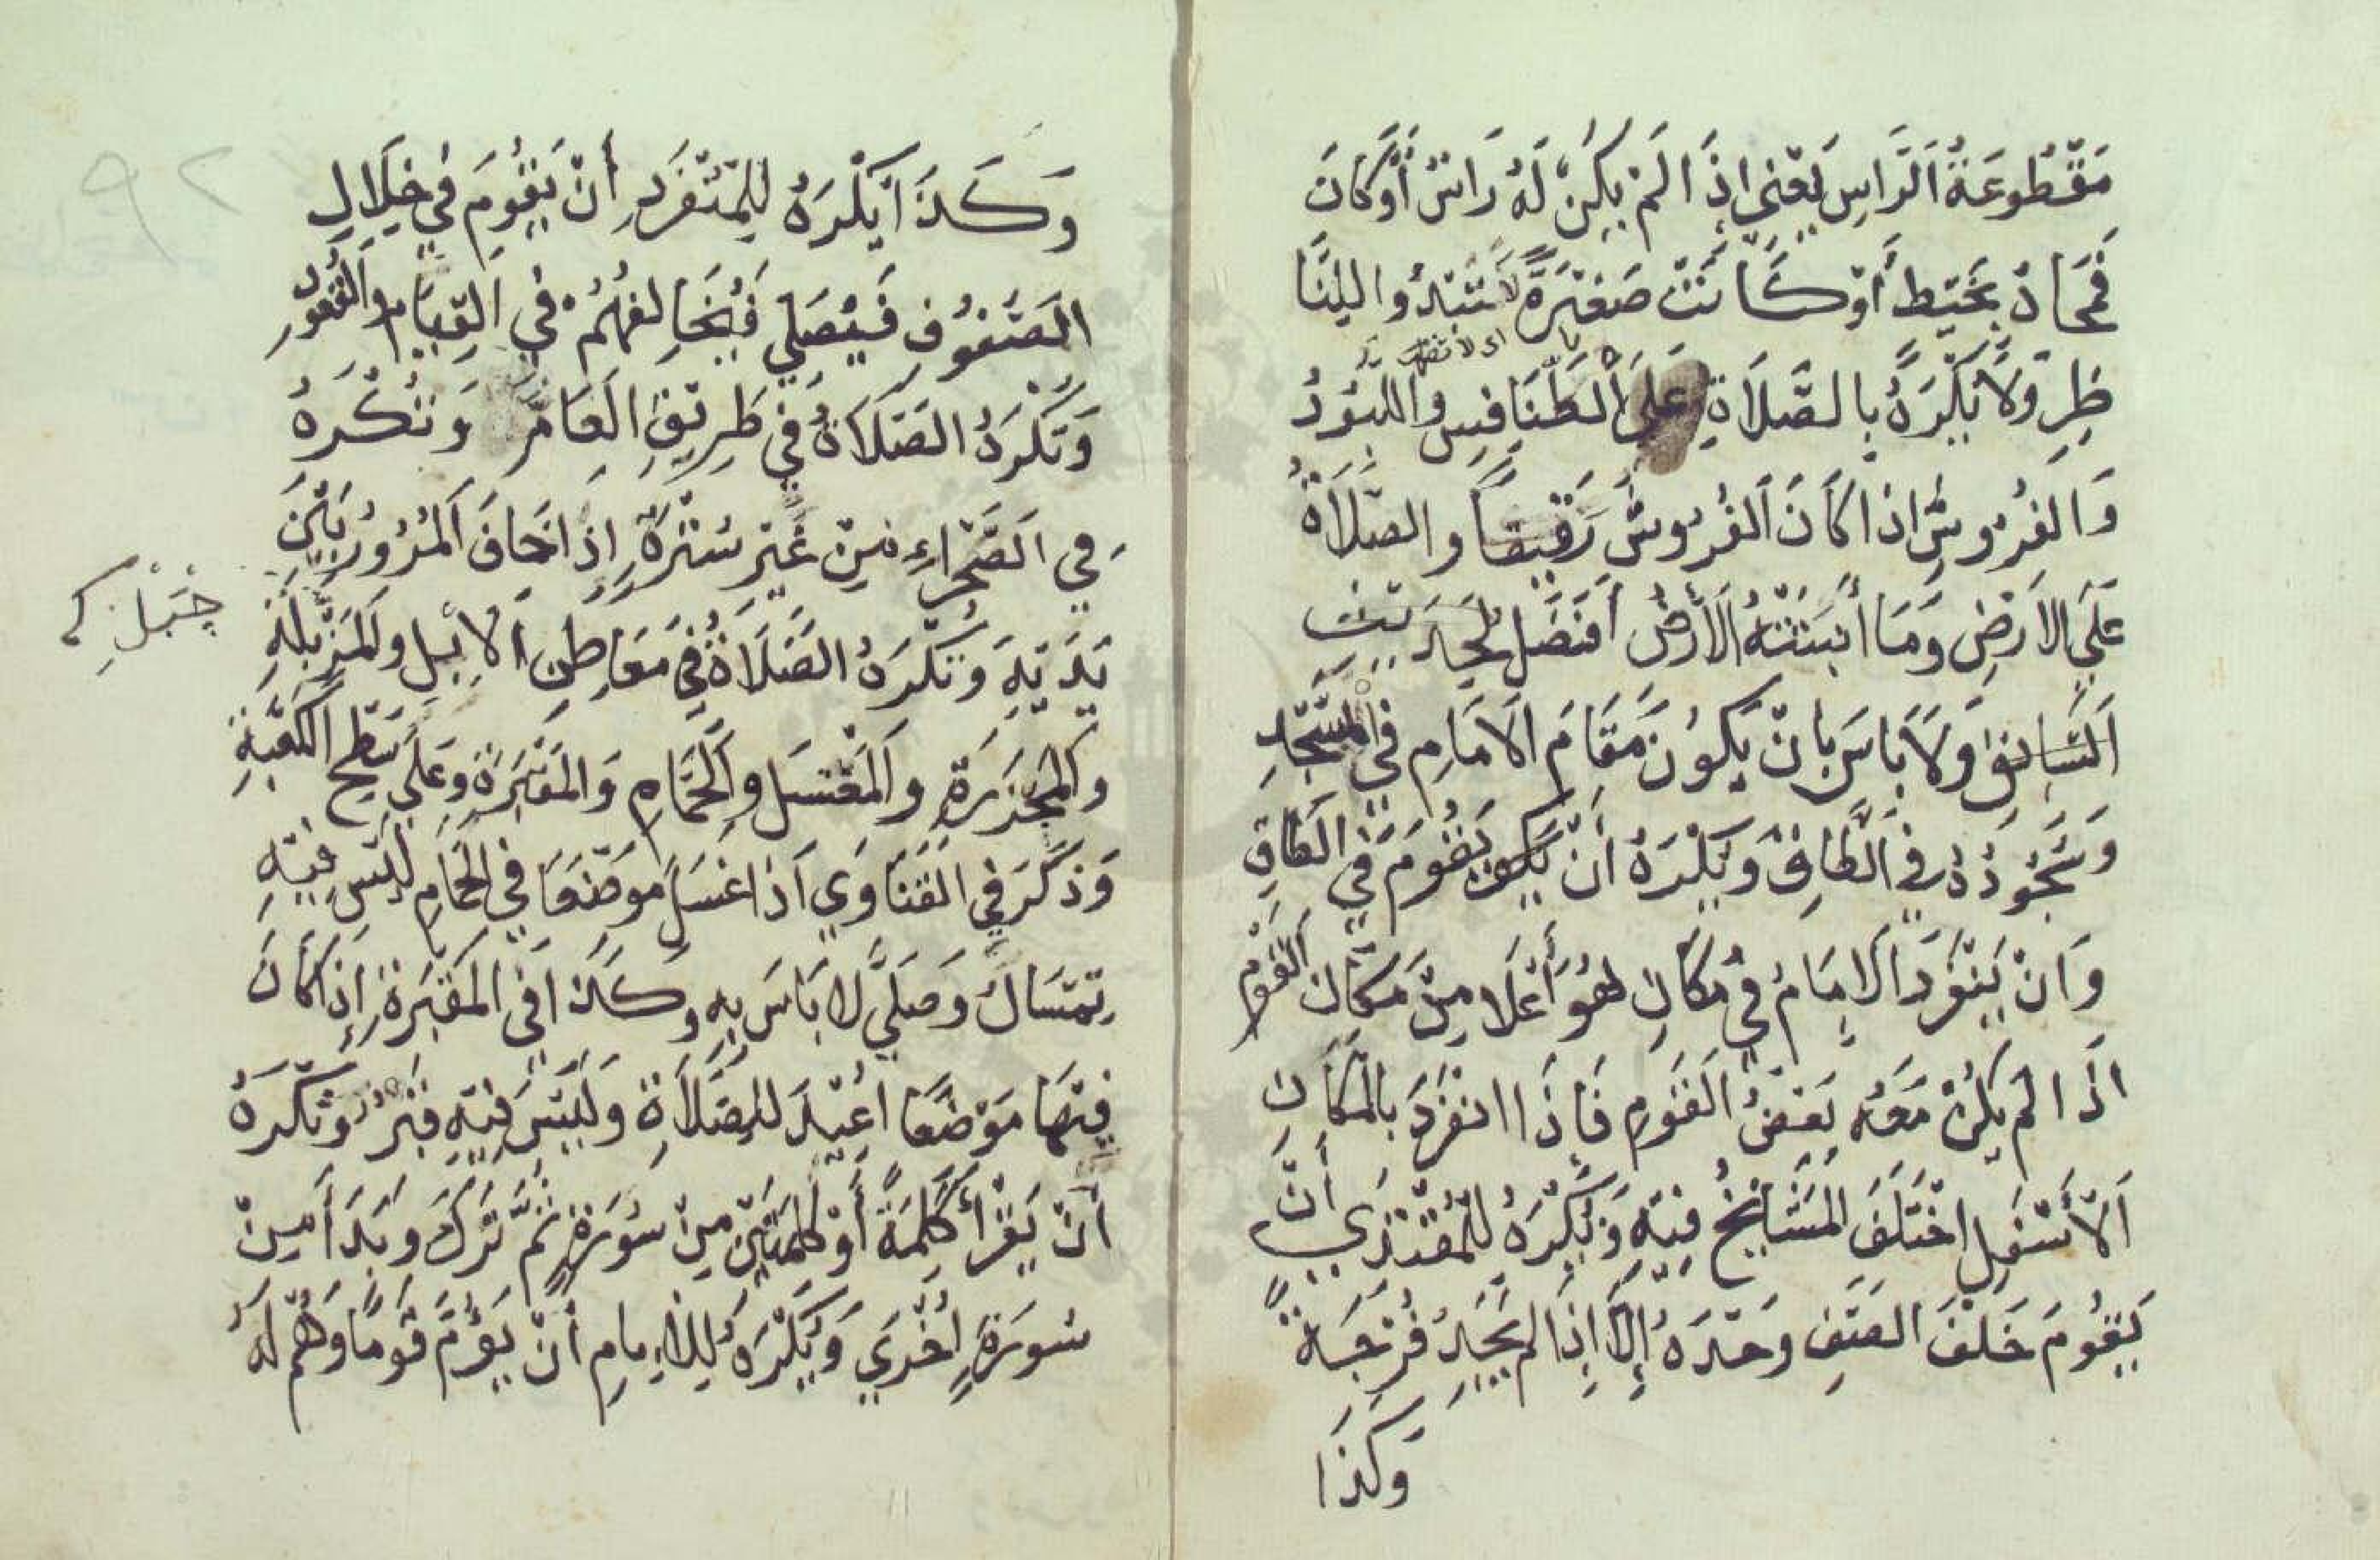 مَقْطُوعَةُ الرَّاسِ يَعْنِي اِذَا لَمْ يَكُنْ لَهُ رَاسٌ أَوْ كَانَ
فَمَحَاهُ بِخَيْطٍ أَوْ كَانَتْ صَغِيْرَةً لَا تَبْدُوا لِلنَّا
اى لا تظهر
ظِرِ وَلَا يُكْرَهُ بِالصَّلَاةِ عَلَى الطَّنَافِسِ وَاللُّبُوْدُ
وَالفُرُوشِ اِذَا كَانَ الفُرُوشُ رَقِيْقًا وَالصَّلَاةُ
عَلَي الاَرْضِ وَمَا أَنْبَتَتْهُ الاَرْضُ أَفْضَل لِحَدِيْثِ
السَّابِقِ وَلَا بَاسَ بِانْ يَكُونَ مَقَامَ الاِمَامِ فِي المَسْجِدِ
وَسُجُوْدُهُ فِي الطَّاقِ وَيُكْرَهُ انْ يَكون يَقُوْمَ فِي الطَّاقِ
وَانْ يَنْفَرِدَ الاِمَامُ فِي مَكَانٍ هُوَ أَعْلَا مِنْ مَكَانِ القَوْمِ
اِذَا لَمْ يَكُنْ مَعَهُ بَعْضُ القَوْمِ فَاِذَا انْفَرَدَ بِالمَكَانِ
الأَسْفَلِ اخْتَلَفَ المَشَايِخُ فِيْهِ وَيُكْرَهُ لِلْمُقْتَدِي أَنْ
يَقُوْمَ خَلْفَ الصَّفِ وَحْدَهُ إِلَّا اِذَا لَمْ يَجِدْ فُرْجَةً
وَكَذَا
٩٢
وَكَذَا يُكْرَهُ لِلْمُنْفَرِدِ أَنْ يَقُوْمَ فِي خِلَالِ
الصُّفُوْفِ فَيُصَلِّي فَيُخَالِفُهُمْ فِي القِيَامِ وَالقُعُوْدِ
وَتُكْرَهُ الصَّلَاةُ فِي طَرِيْقِ العَامَّةِ وَتُكْرَهُ
فِي الصَّحْرَاءِ مِنْ غَيْرِ سُتْرَةٍ اِذَا خَافَ المُرُوْرَ بَيْنَ
يَدَيْهِ وَتُكْرَهُ الصَّلَاةُ فِي مَعَاطِنِ الاِبْلِ وَالمَزْبَلَةِ
وَالمَجْزَرَةِ وَالمَغْتَسَلِ وَالحَمَّامِ وَالمَقْبَرَةِ وَعَلَى سَطْحِ الكَعْبَةِ
وَذَكَرَ فِي الفَتَاوِي اِذَا غَسَلَ مَوْضِعًا فِي الحَمَّامِ لَيْسَ فِيْهِ
تِمْثَالٌ وَصَلَّي لَا بَاسَ بِهِ وَكَذَا فِي المَقْبَرَةِ اِذَا كَانَ
فِيْهَا مَوْضِعًا اُعِيْدَ لِلصَّلَاةِ وَلَيْسَ فِيْهِ قَبْرٌ وَيُكْرَهُ
أَنْ يَقْرَأَ كَلِمَةً أَوْ كَلِمَتَيْنِ مِنْ سُوْرَةٍ ثُمَّ تَرَكَ وَبَدَأَ مِنْ
سُورَةٍ اُخْرَي وَيُكْرَهُ لِلاِمَامِ أَنْ يَؤُمَّ قَوْمًا وَهُمْ لَهُ